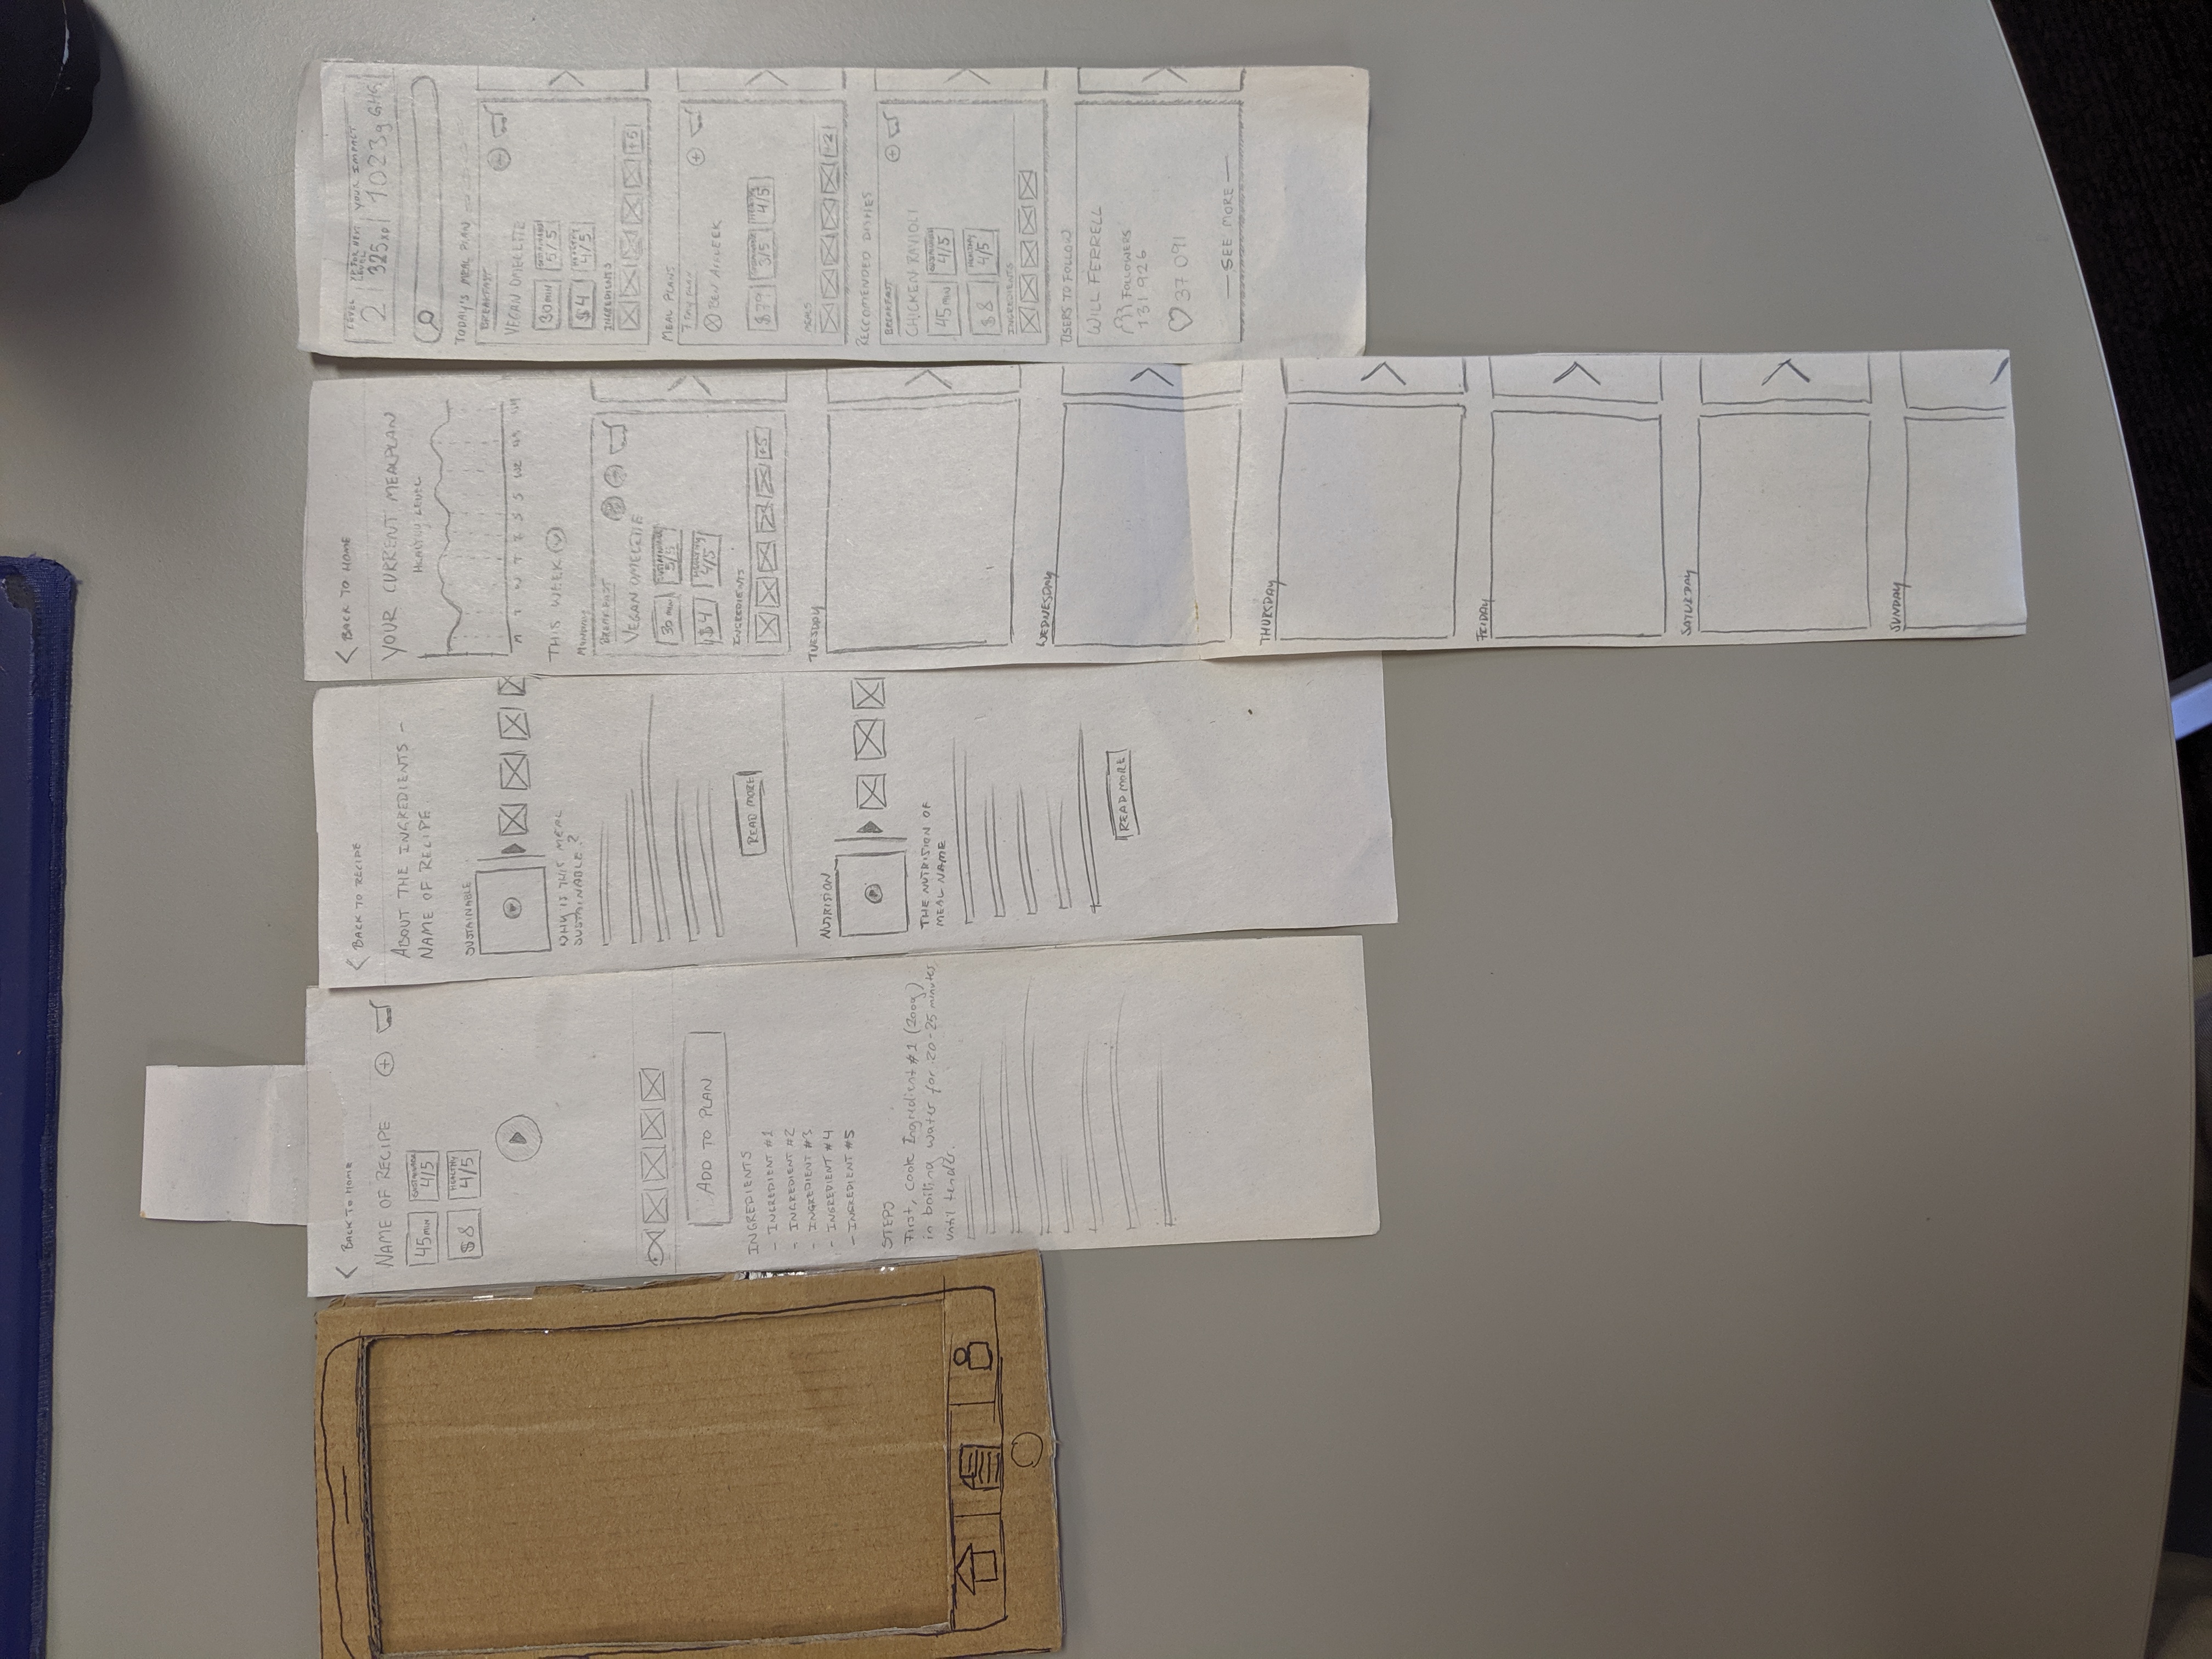 BACK TO HOME
NAME OF RECIPE
45 MIN
SUSTAINABLE
4/5
$8
HEALTHY
4/5
ADD TO PLAN
INGREDIENTS
- INGREDIENT #1
- INGREDIENT #2
- INGREDIENT #3
- INGREDIENT #4
- INGREDIENT #5
STEPS
First, cook Ingredient #1 (200g)
in boiling water for 20-25 minutes,
until tender.
BACK TO RECIPE
ABOUT THE INGREDIENTS -
NAME OF RECIPE
SUSTAINABLE
WHY IS THIS MEAL
SUSTAINABLE?
READ MORE
NUTRISION
THE NUTRISION OF
MEAL NAME
READ MORE
BACK TO HOME
YOUR CURRENT MEALPLAN
HEALTHY LEVEL
M T W T F S S
THIS WEEK
MONDAY
BREAKFAST
VEGAN OMELETTE
30 MIN
SUSTAINABLE
5/5
$4
HEALTHY
4/5
INGREDIENTS
+5
TUESDAY
WEDNESDAY
THURSDAY
FRIDAY
SATURDAY
SUNDAY
LEVEL
2
XP FOR NEXT
LEVEL
325 XP
YOUR IMPACT
1023g GHG
TODAY'S MEAL PLAN
BREAKFAST
VEGAN OMELETTE
30 MIN
SUSTAINABLE
5/5
$4
HEALTHY
4/5
INGREDIENTS
+5
MEAL PLANS
7 DAY PLAN
BEN AFFLEEK
SUSTAINABLE
3/5
HEALTHY
4/5
MEALS
+2
RECCOMENDED DISHES
BREAKFAST
CHICKEN RAVIOLI
45 MIN
SUSTAINABLE
4/5
$8
HEALTHY
4/5
INGREDIENTS
USERS TO FOLLOW
WILL FERRELL
FOLLOWERS
131 926
37 091
— SEE MORE —